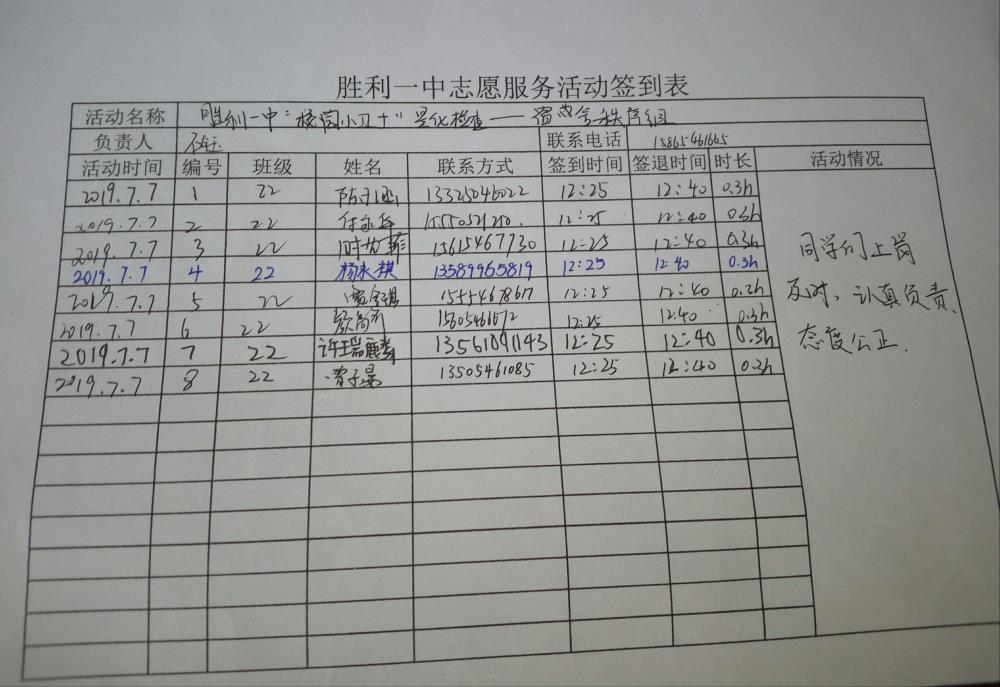 胜利一中志愿服务活动签到表
活动名称 胜利一中"校园小卫士"量化检查——宿舍秩序组
负责人 联系电话 15865461665
活动时间 编号 班级 姓名 联系方式 签到时间 签退时间 时长 活动情况
2019.7.7 1 22 13325046022 12:25 12:40 0.3h
2019.7.7 2 22 12:25 12:40 0.3h
2019.7.7 3 22 15615467730 12:25 12:40 0.3h
2019.7.7 4 22 杨永祺 13589965819 12:25 12:40 0.3h
2019.7.7 5 22 15454678617 12:25 12:40 0.3h
2019.7.7 6 22 15605461672 12:25 12:40 0.3h
2019.7.7 7 22 许王瑞麟 13561091143 12:25 12:40 0.3h
2019.7.7 8 22 曹子昊 13505461085 12:25 12:40 0.3h
同学们上岗
及时,认真负责,
态度公正.